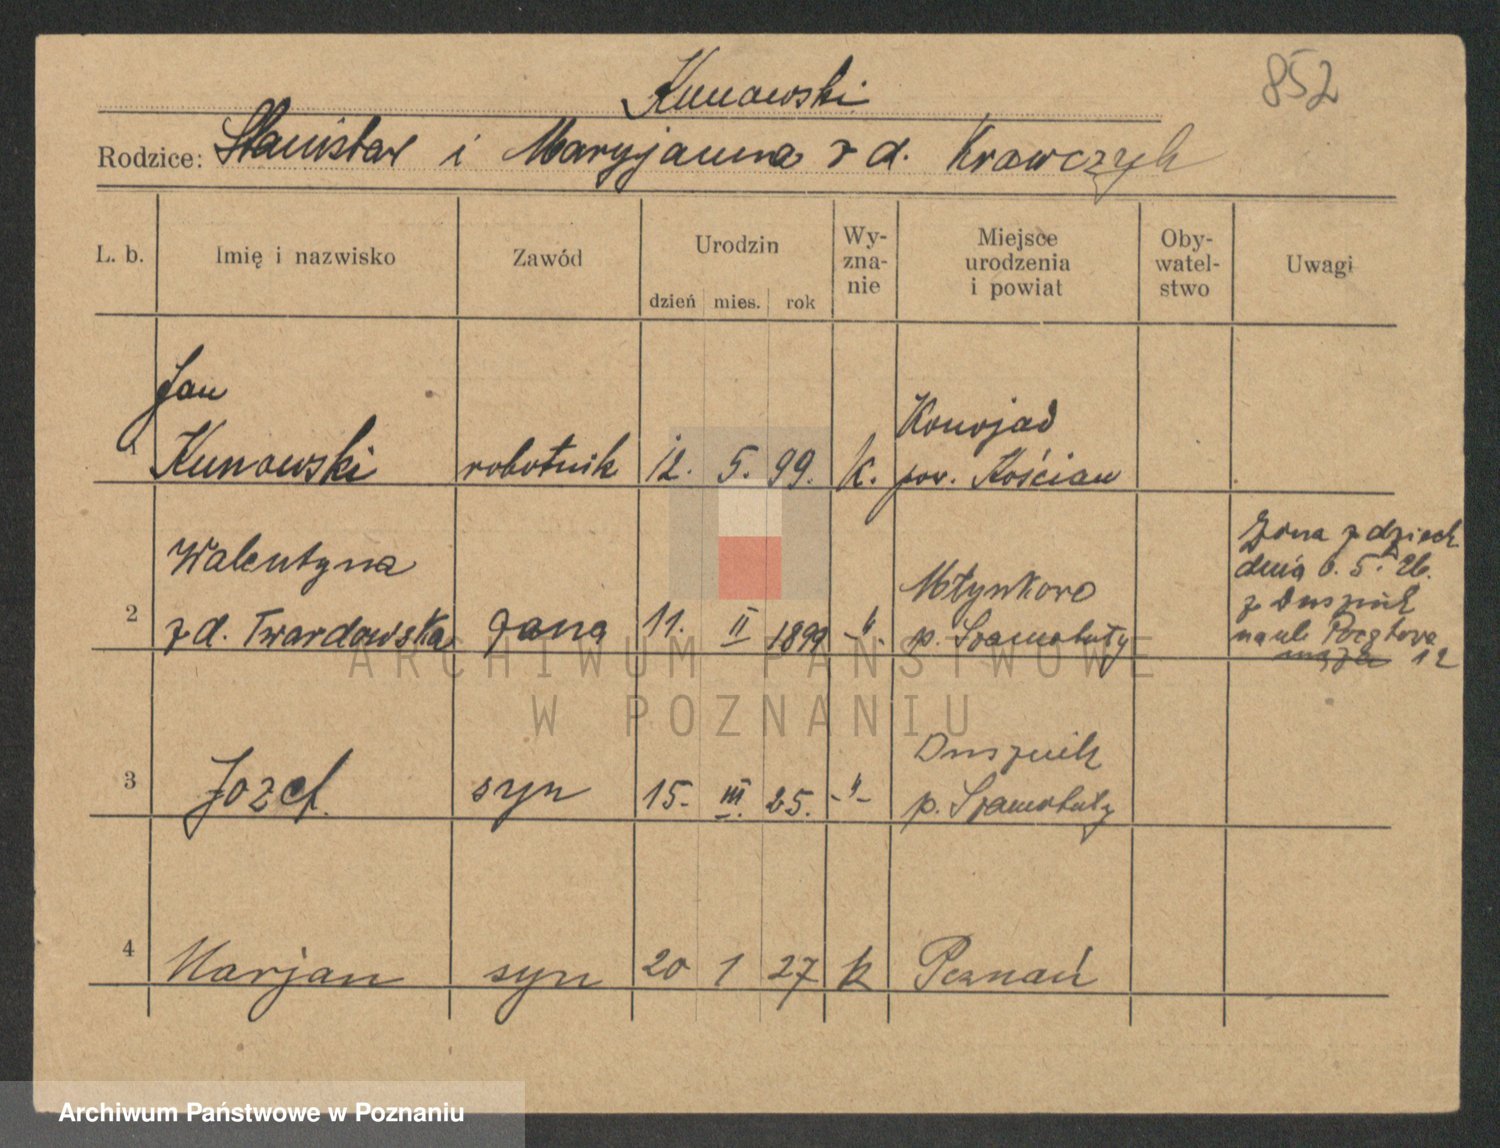 Kunowski
852
Rodzice: Stanisław i Maryjanna z d. Krawczyk
L. b. Imię i nazwisko Zawód Urodzin Wy- Miejsce Oby- Uwagi
zna- urodzenia watel-
dzień mies. rok nie i powiat stwo
Jan Konojad
1 Kunowski robotnik 12. 5. 99. k. pow. Kościan
Walentyna Młynkowo
2 z d. Twardowska żona 11. II 1899 -"- p. Szamotuły
Żona z dzieck
dnia 6. 5. 26.
z Dusznik
na ul. Pocztową
męża 12
Dusznik
3 Jozef. syn 15. III. 25. -"- p. Szamotuły
4 Marjan syn 20 1 27 k Poznań
ARCHIWUM PAŃSTWOWE
W POZNANIU
Archiwum Państwowe w Poznaniu